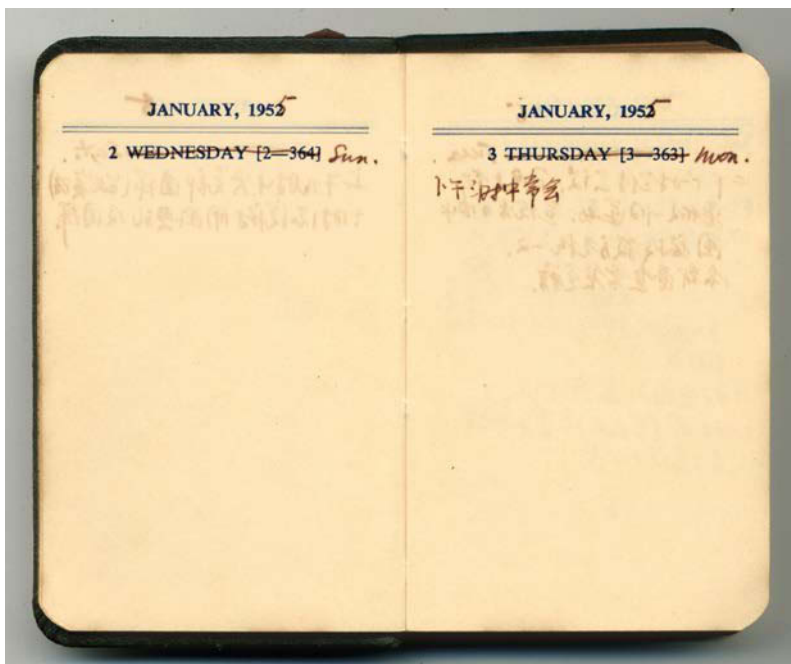 JANUARY, 1955
2 WEDNESDAY [2—364] Sun.
JANUARY, 1955
3 THURSDAY [3—363] Mon.
下午 中常会